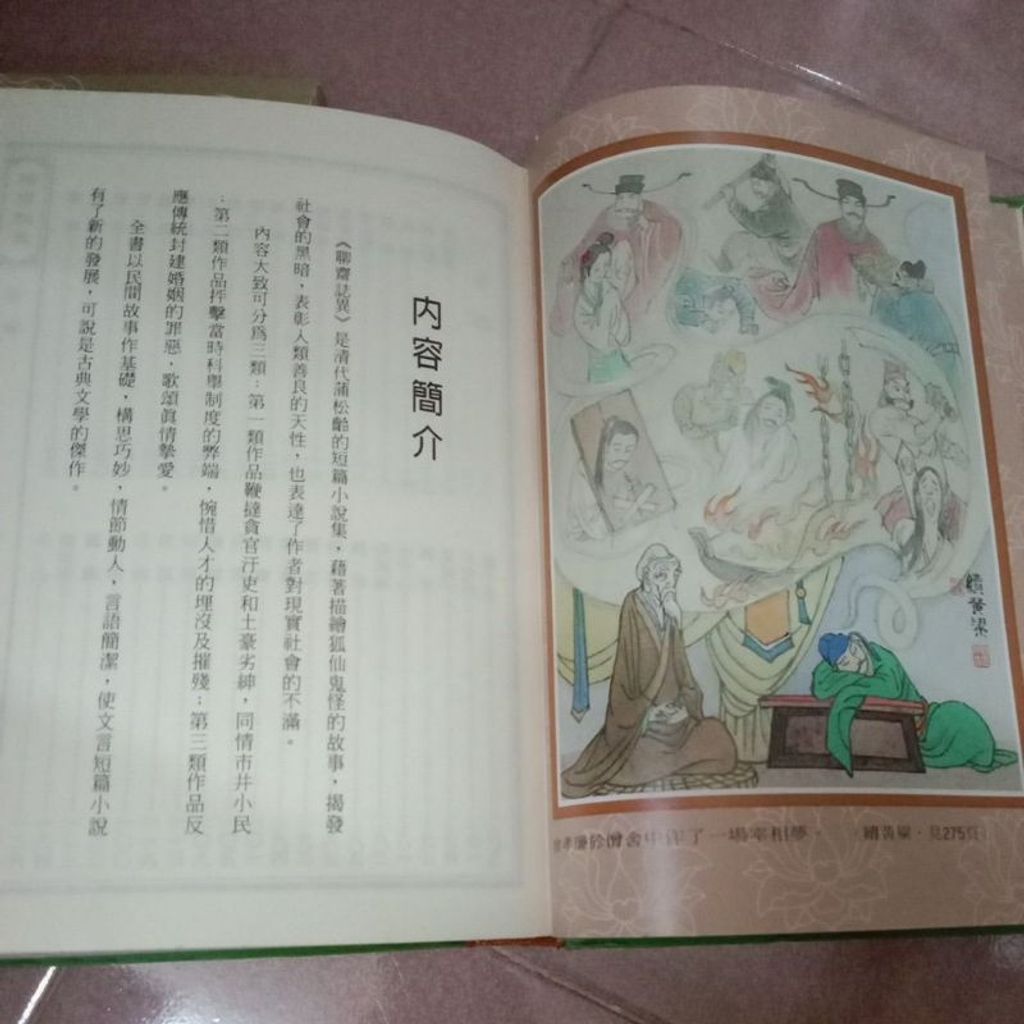 內容簡介
《聊齋誌異》是清代蒲松齡的短篇小說集，藉著描繪狐仙鬼怪的故事，揭發
社會的黑暗，表彰人類善良的天性，也表達了作者對現實社會的不滿。
內容大致可分爲三類：第一類作品鞭撻貪官汙吏和土豪劣紳，同情市井小民
；第二類作品抨擊當時科舉制度的弊端，惋惜人才的埋沒及摧殘；第三類作品反
應傳統封建婚姻的罪惡，歌頌眞情摯愛。
全書以民間故事作基礎，構思巧妙，情節動人，言語簡潔，使文言短篇小說
有了新的發展，可說是古典文學的傑作。
續黃粱
曾孝廉於僧舍中作了一場宰相夢。
續黃粱．見275頁